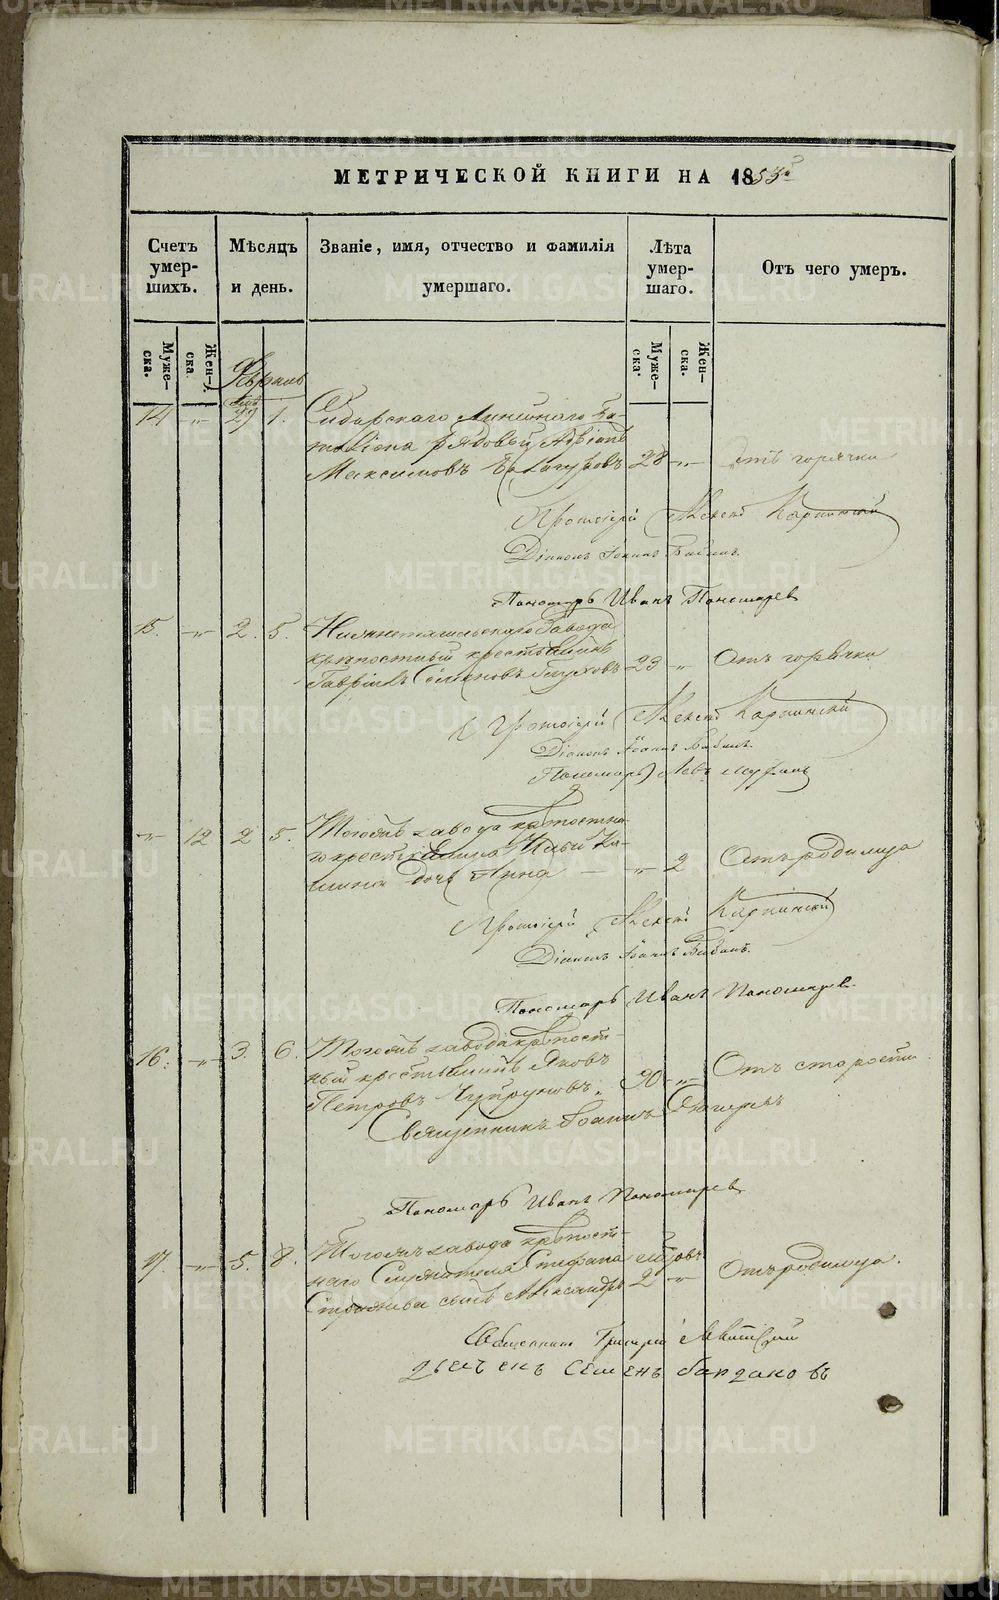 МЕТРИЧЕСКОЙ КНИГИ НА 1853й
Счетъ умер-шихъ.
Мѣсяцъ и день.
Званіе, имя, отчество и фамилія умершаго.
Лѣта умер-шаго.
Отъ чего умеръ.
Муже-ска.
Жен-ска.
Муже-ска.
Жен-ска.
Февраль
14 -"- 29 1. Сибирскаго Линейнаго Ба-
таліона рядовый Адріанъ
Максимовъ 28 -"- отъ горячки
Протоіерей Алексій Карпинскій
Діаконъ Іоаннъ Бабинъ.
Пономарь Иванъ Пономарев
15. -"- 2. 5. Нижнетагильскаго Завода
крѣпостный крестьянинъ
Гавріилъ Семеновъ Глуховъ 23 -"- Отъ горячки
Протоіерей Алексій Карпинскій
Діаконъ Іоаннъ Бабинъ.
Пономарь Левъ
-"- 12 2 5. Тогожъ завода крѣпостна-
го крестьянина Ильи
дочь Анна -"- 2 Отъ родимца
Протоіерей Алексій Карпинскій
Діаконъ Іоаннъ Бабинъ.
Пономарь Иванъ Пономарев.
16. -"- 3. 6. Тогожъ завода крѣпост-
ный крестьянинъ Яковъ
Петровъ 90 -"- Отъ старости
Священникъ Іоаннъ
Пономарь Иванъ Пономарев
17. -"- 5. 8. Тогожъ завода крѣпост-
наго Служителя Стефана
сынъ Александръ 2 -"- Отъ родимца.
Священникъ Григорій
дьечекъ Семенъ
METRIKI.GASO-URAL.RU